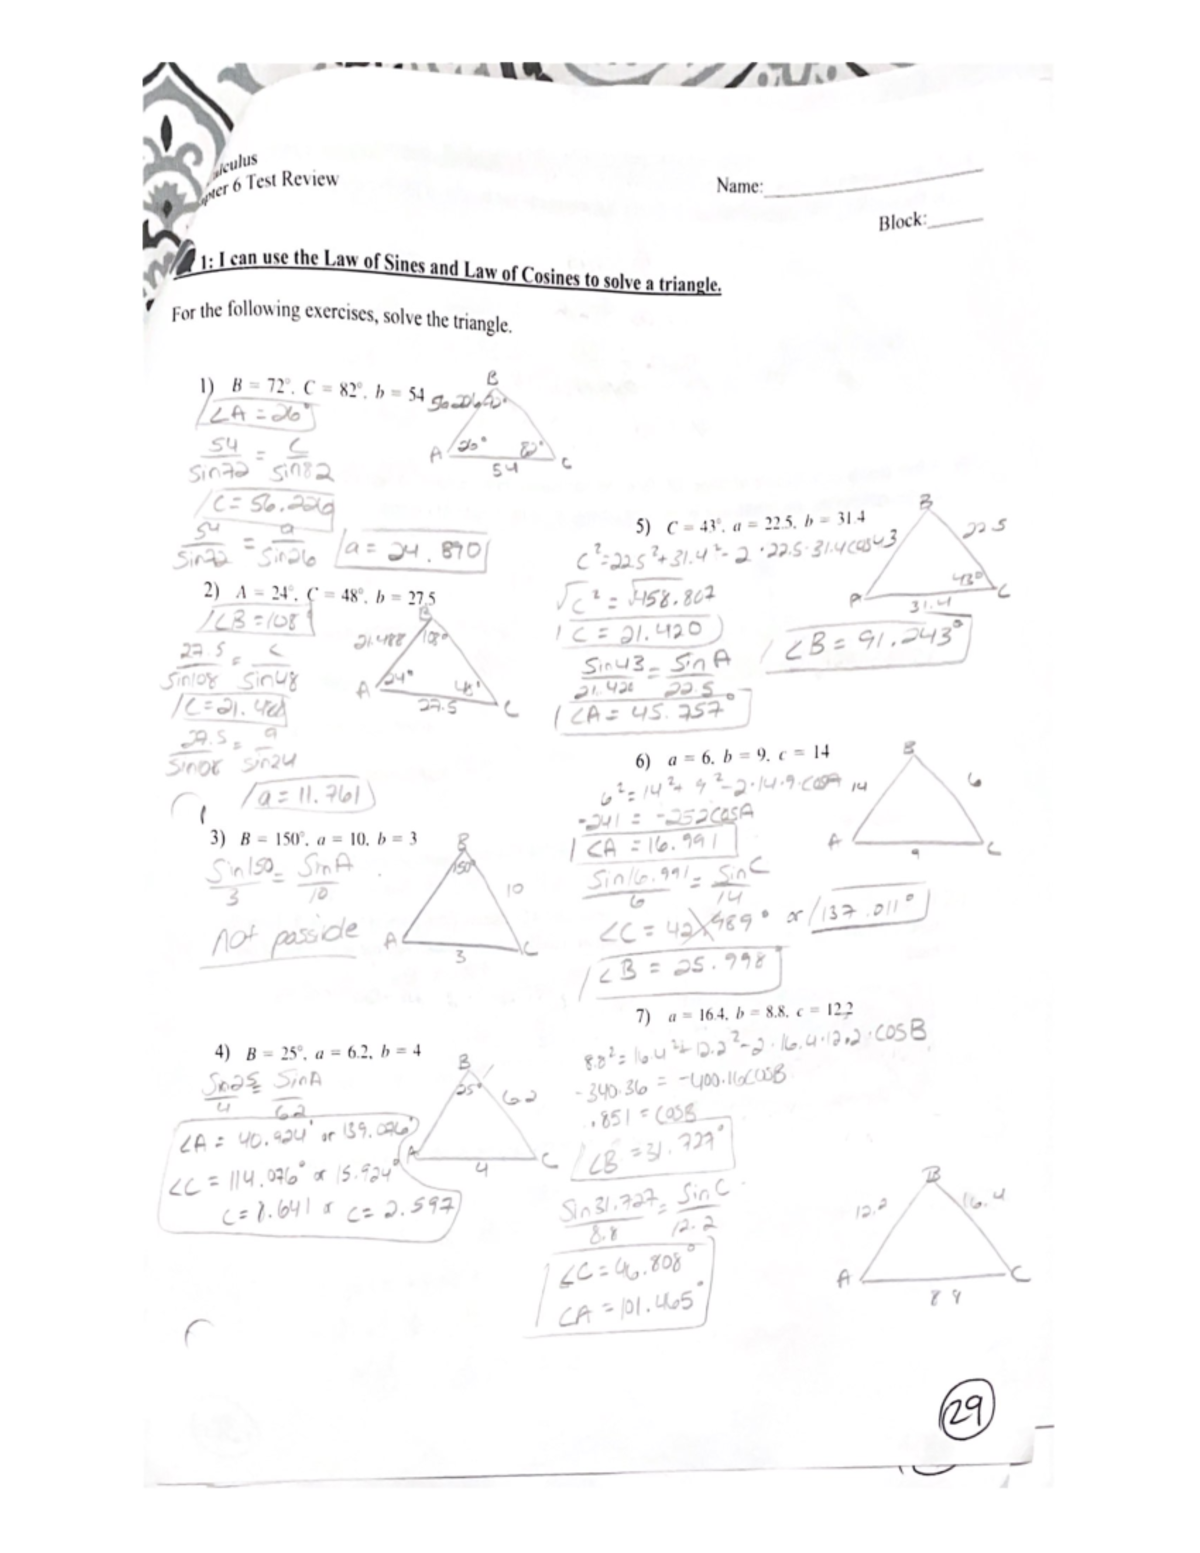 culus
pter 6 Test Review
Name:
Block:
1: I can use the Law of Sines and Law of Cosines to solve a triangle.
For the following exercises, solve the triangle.
1) B = 72°, C = 82°, b = 54
∠A = 26°
54/sin72 = c/sin82
C = 56.226
54/sin72 = a/sin26
a = 24.890
B
A 26° 82° C
54
2) A = 24°, C = 48°, b = 27.5
∠B = 108°
27.5/sin108 = c/sin48
C = 21.488
27.5/sin108 = a/sin24
a = 11.761
B
21.488 108°
A 24° 48° C
27.5
3) B = 150°, a = 10, b = 3
Sin150/3 = SinA/10
not possible
B
150°
10
A C
3
4) B = 25°, a = 6.2, b = 4
Sin25/4 = SinA/6.2
∠A = 40.924° or 139.076°
∠C = 114.076° or 15.924°
C = 8.641 or C = 2.597
B
25° 6.2
A C
4
5) C = 43°, a = 22.5, b = 31.4
C² = 22.5² + 31.4² - 2 · 22.5 · 31.4cos43
√C² = √458.807
C = 21.420
Sin43/21.420 = SinA/22.5
∠A = 45.757°
∠B = 91.243°
B
22.5
A 43° C
31.4
6) a = 6, b = 9, c = 14
6² = 14² + 9² - 2 · 14 · 9 · cosA
-241 = -252cosA
∠A = 16.991
Sin16.991/6 = SinC/14
∠C = 42.989° or 137.011°
∠B = 25.998°
B
14 6
A C
9
7) a = 16.4, b = 8.8, c = 12.2
8.8² = 16.4² + 12.2² - 2 · 16.4 · 12.2 · cosB
-340.36 = -400.16cosB
.851 = cosB
∠B = 31.727°
Sin31.727/8.8 = SinC/12.2
∠C = 46.808°
∠A = 101.465°
B
12.2 16.4
A C
8.8
29